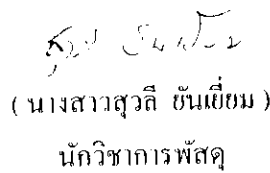 ( นางสาวสุวลี ยันเยี่ยม )
นักวิชาการพัสดุ